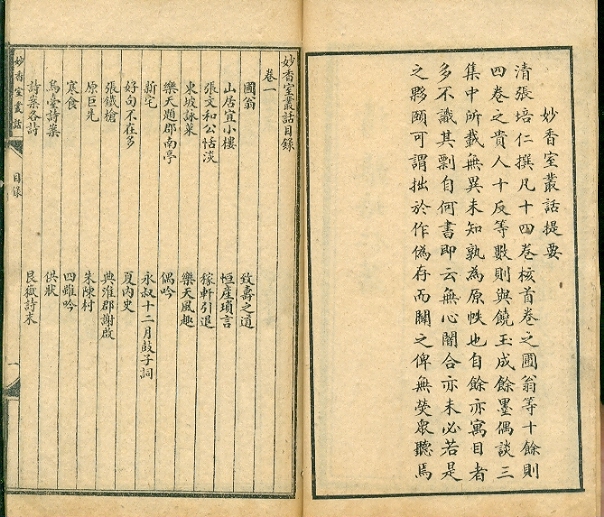 妙香室叢話提要
清張培仁撰凡十四卷核首卷之圃翁等十餘則
四卷之貴人十反等數則與饒玉成餘墨偶談三
集中所載無異未知孰為原帙也自餘亦寓目者
多不識其剽自何書即云無心闇合亦未必若是
之夥頤可謂拙於作偽存而闢之俾無熒眾聽焉
妙香室叢話目錄
卷一
圃翁 致壽之道
山居宜小樓 恒產瑣言
張文和公恬淡 稼軒引退
東坡詠菜 樂天風趣
樂天題郡南亭 偶吟
新宅 永叔十二月鼓子詞
好句不在多 夏內史
張鐵槍 典淮郡謝啟
原巨先 朱陳村
寒食 四雖吟
烏臺詩案 供狀
詩案各詩 艮嶽詩末
妙香室叢話 目錄 一